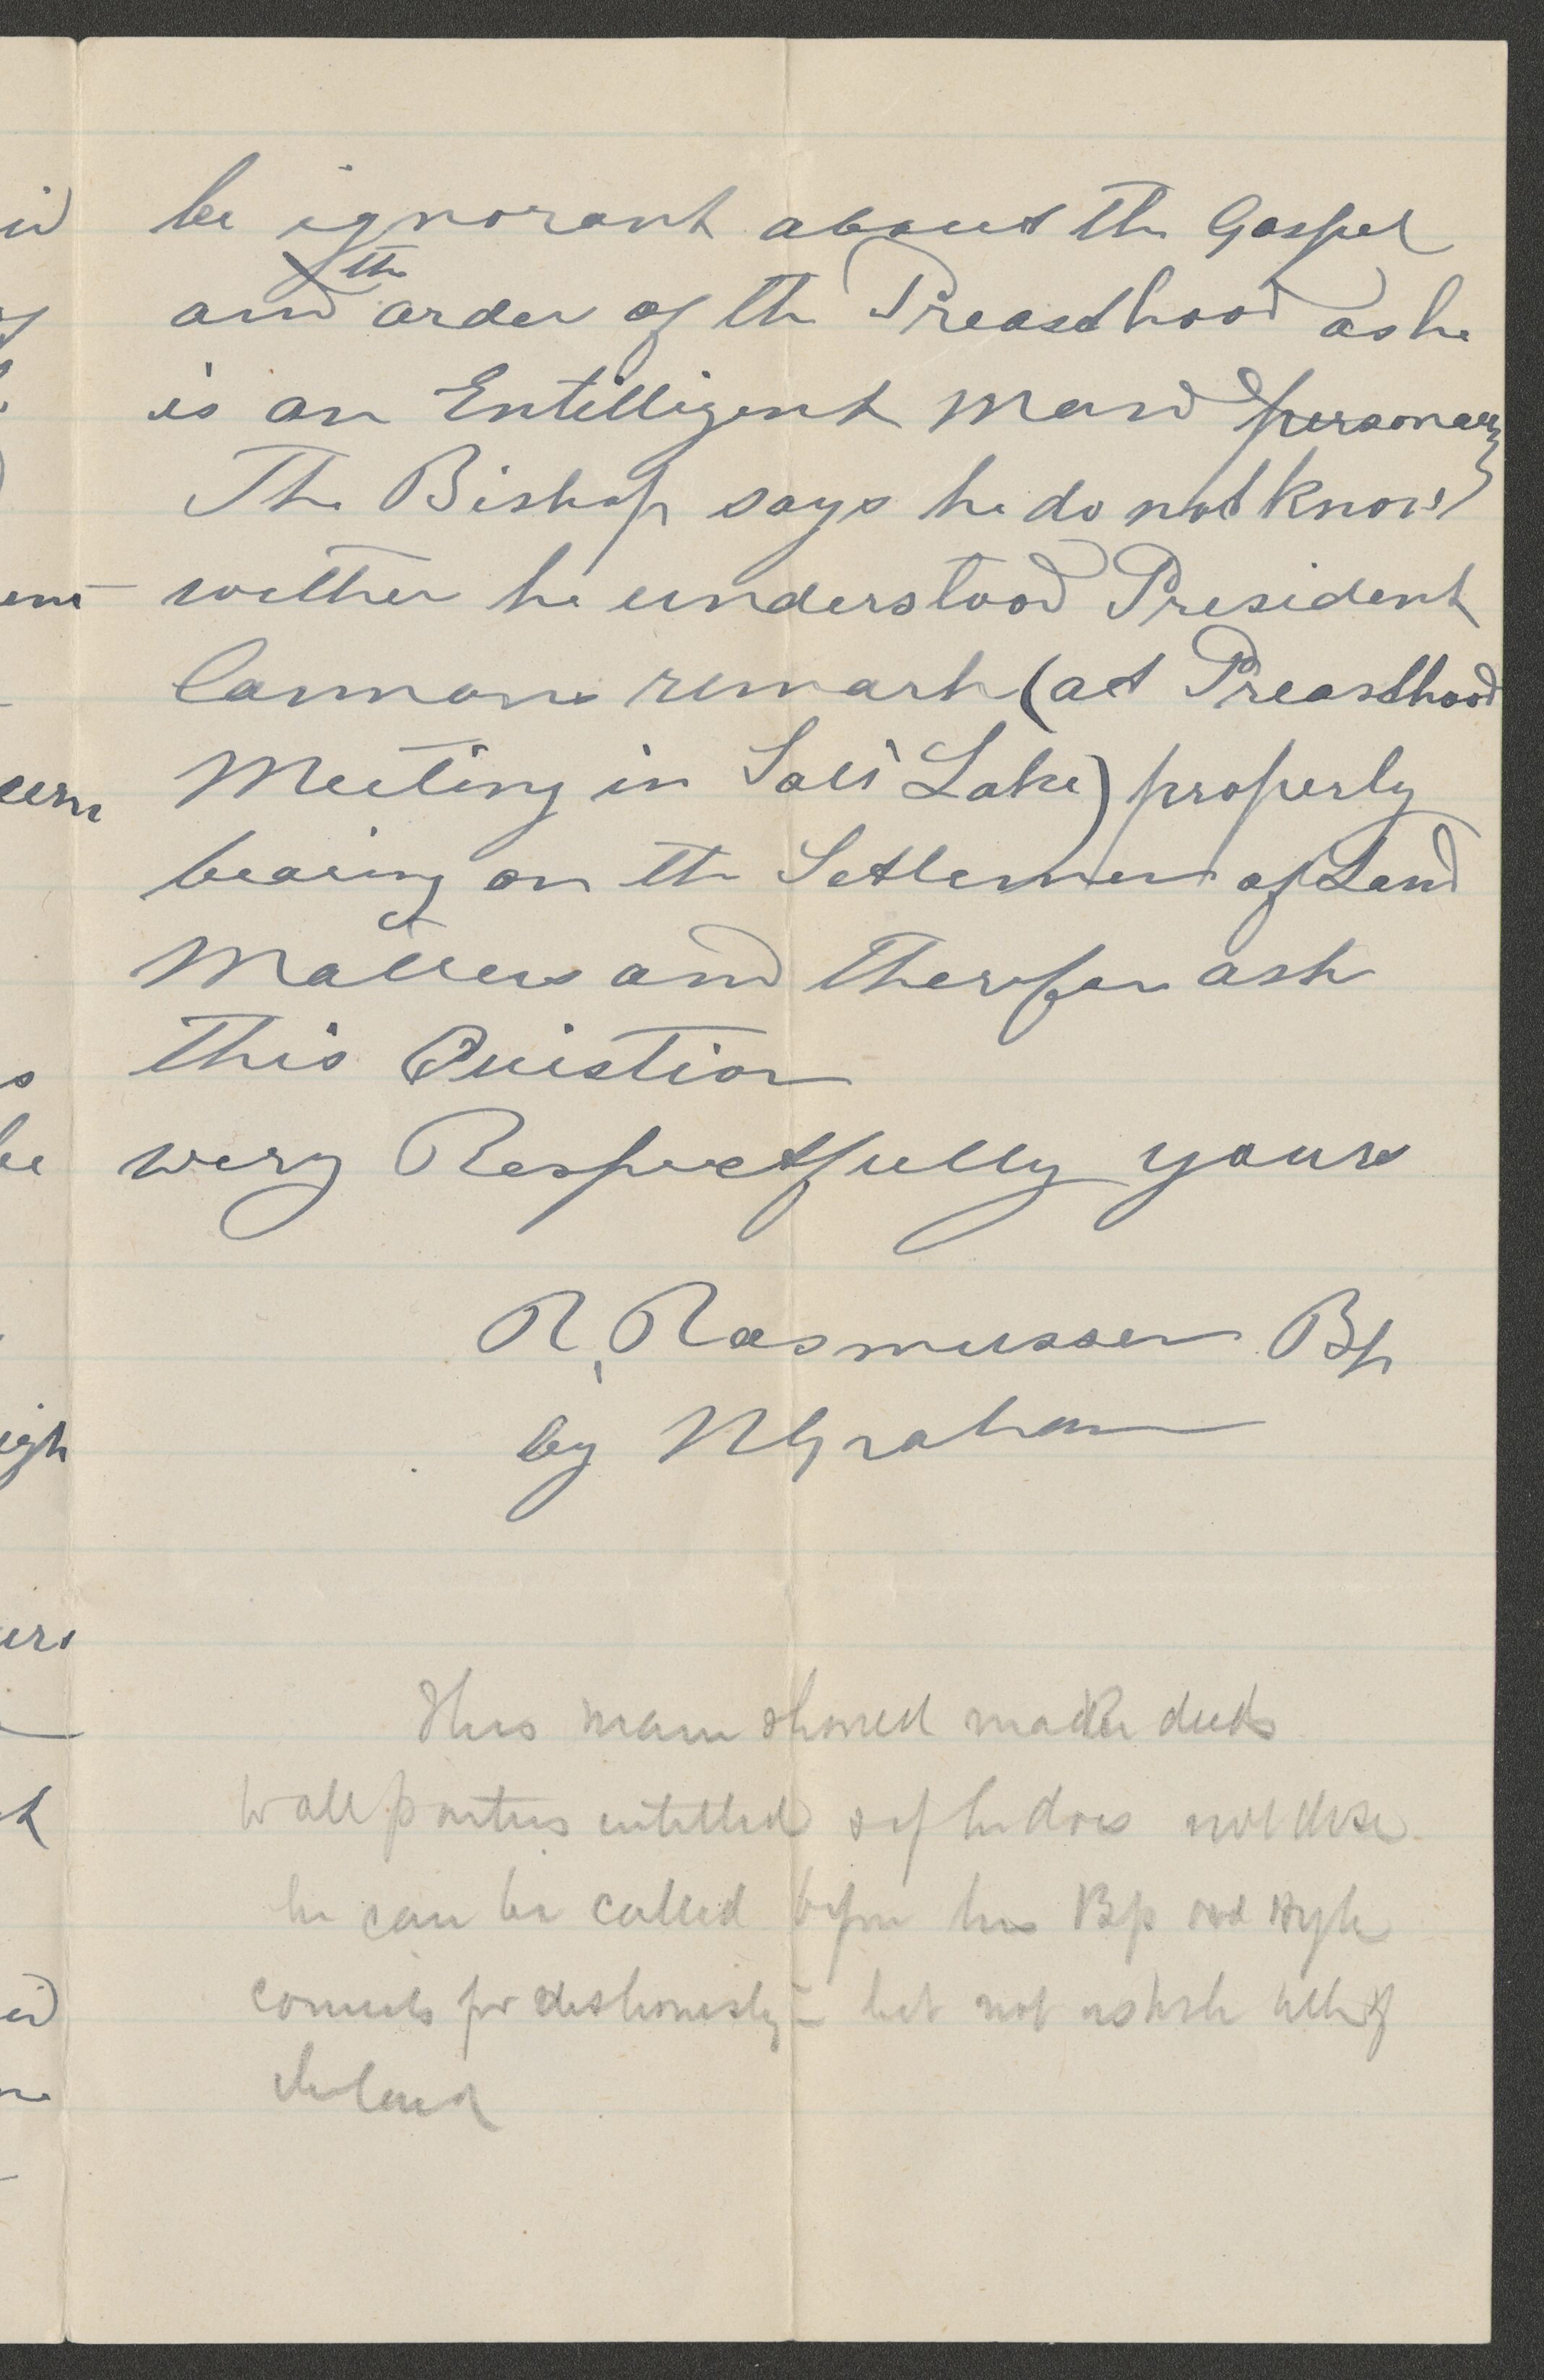 be ignorant about the Gospel
and the order of the Preasthood as he
is an Entilligent Man
The Bishop says he do not know
wether he understood President
Cannons remark (at Preasthood
Meeting in Salt Lake) properly
bearing on the Setlement of Land
Matters and Therefor ask
This Quistion
wery Respectfully yours
R. Rasmussen Bp
by N Graham
This man should make deeds
to all parties entitled & if he does not do so
he can be called before his Bp and High
councils for dishonesty - but not as to the title of
the land